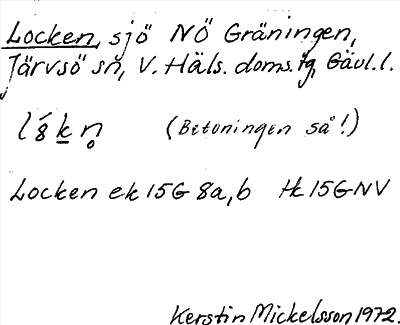 Locken, sjö NÖ Gräningen,
Järvsö sn, V. Häls. doms.tg, Gävl.l.
(Betoningen så!)
Locken ek 15G 8a,b Hk 15GNV
Kerstin Mickelsson 1972.